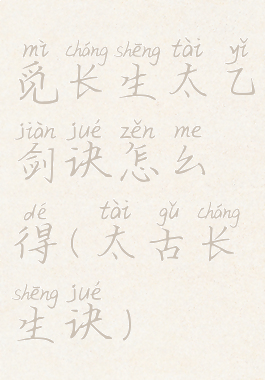 mì cháng shēng tài yǐ
觅长生太乙
jiàn jué zěn me
剑诀怎么
dé tài gǔ cháng
得(太古长
shēng jué
生诀)